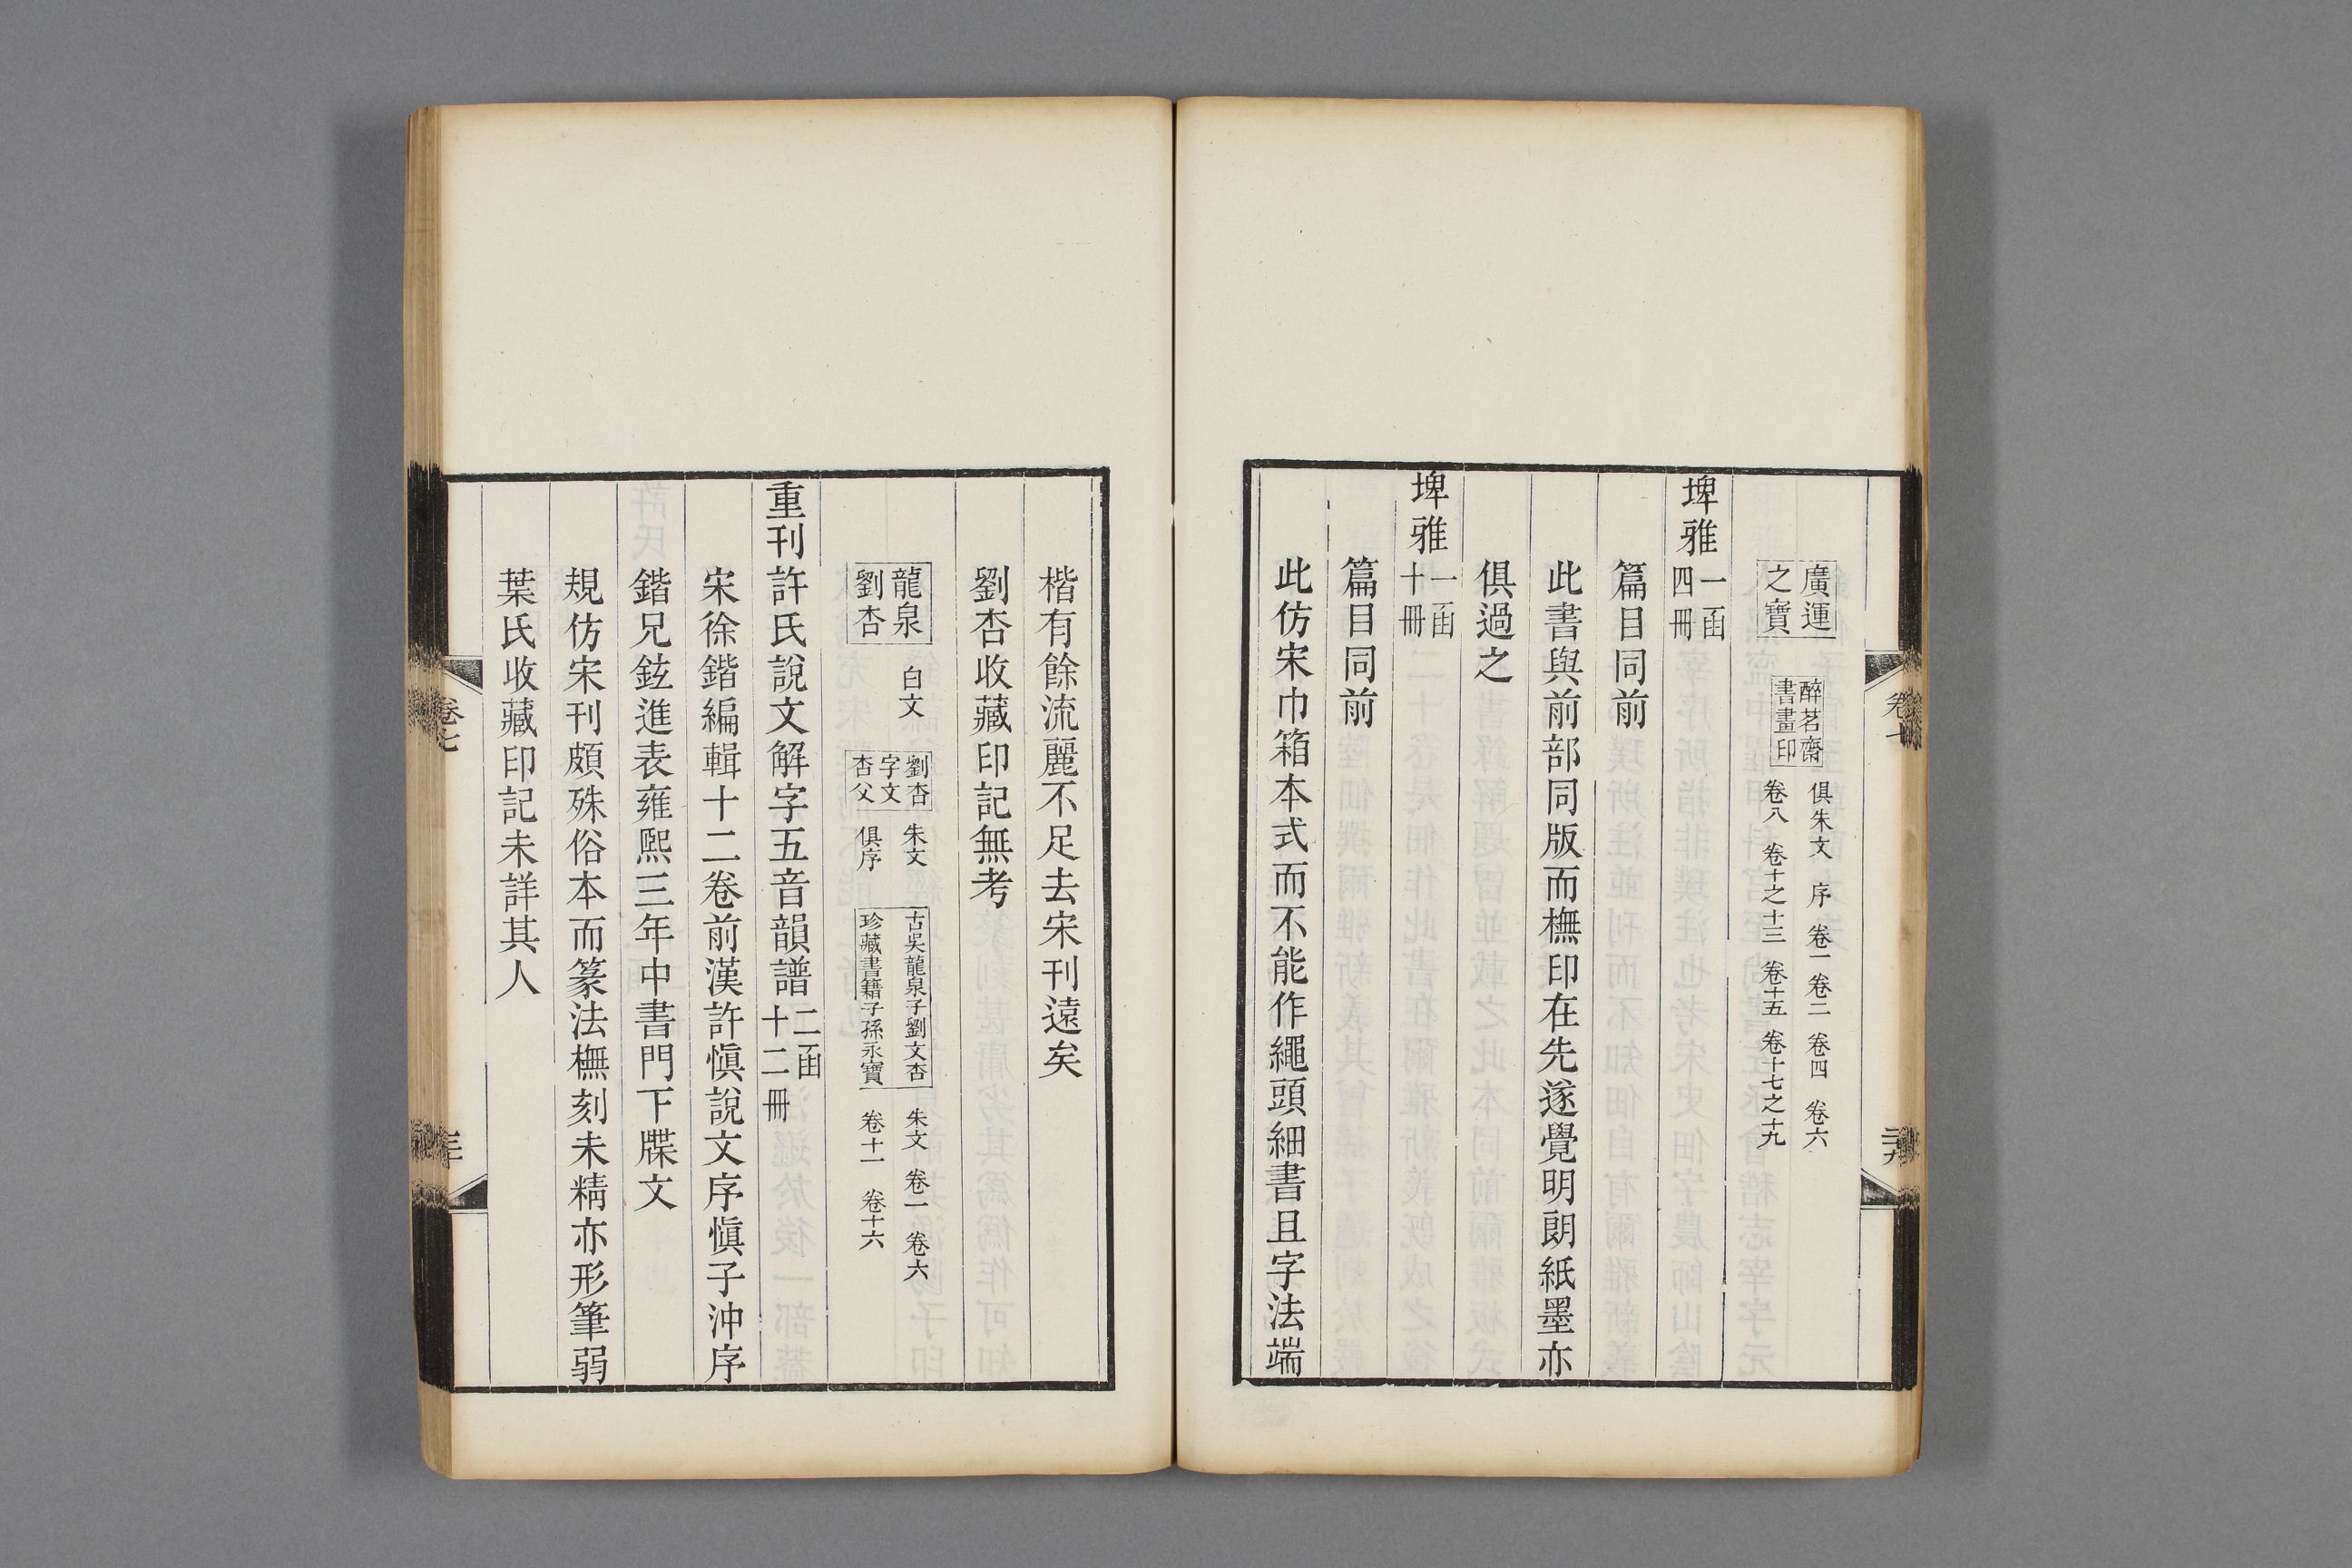 廣運
之寶
醉茗齋
書畫印
俱朱文 序 卷一 卷二 卷四 卷六
卷八 卷十之十三 卷十五 卷十七之十九
埤雅
一函
四冊
篇目同前
此書與前部同版而橅印在先遂覺明朗紙墨亦
俱過之
埤雅
一函
十冊
篇目同前
此仿宋巾箱本式而不能作繩頭細書且字法端
楷有餘流麗不足去宋刊遠矣
劉杏收藏印記無考
龍泉
劉杏
白文
劉杏
字文
杏父
朱文
俱序
古吳龍泉子劉文杏
珍藏書籍子孫永寶
朱文 卷一 卷六
卷十一 卷十六
重刊許氏說文解字五音韻譜
二函
十二冊
宋徐鍇編輯十二卷前漢許慎說文序慎子沖序
鍇兄鉉進表雍熙三年中書門下牒文
規仿宋刊頗殊俗本而篆法橅刻未精亦形筆弱
葉氏收藏印記未詳其人
卷七
三十